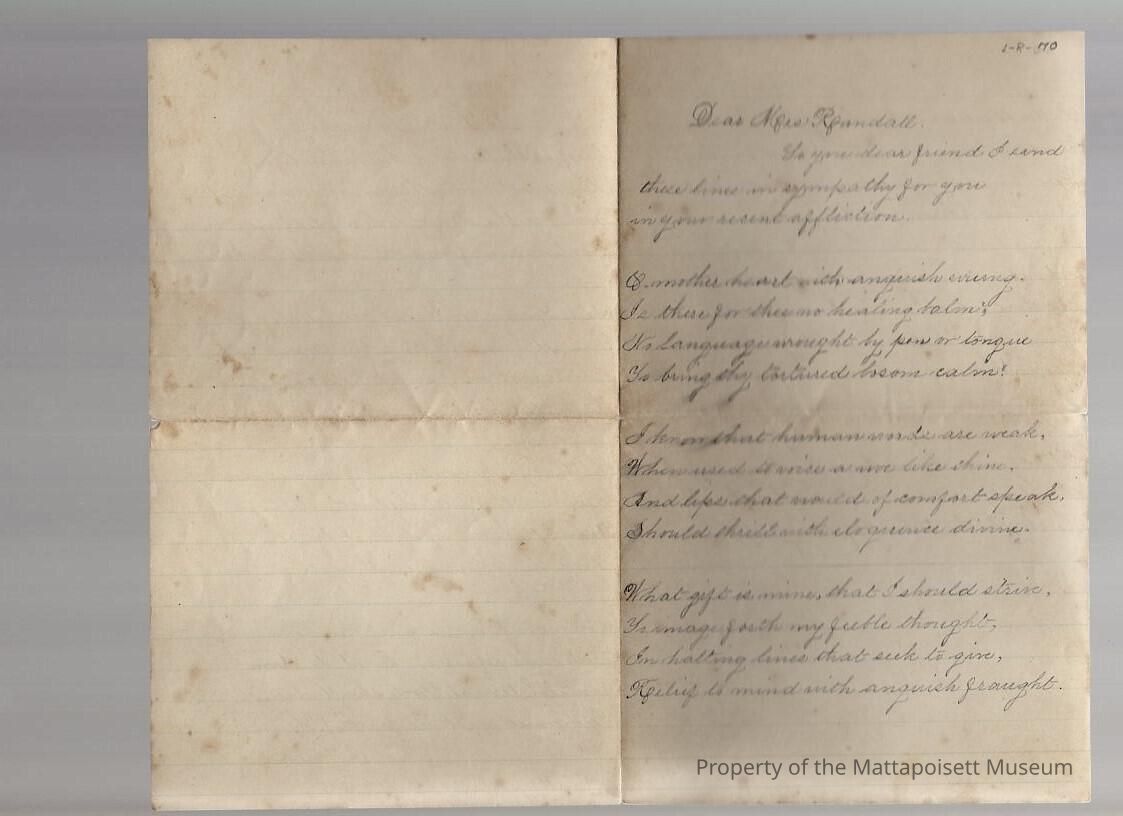 1-R-170
Dear Mrs Randall.
To you dear friend I send
these lines in sympathy for you
in your resent affliction.
O. mother heart with anguish wrung.
Is there for thee no healing balm?
No language wrought by pen or tongue
To bring thy tortured bosom calm!
I know that human words are weak,
When used to voice a woe like thine.
And lips that would of comfort speak.
Should thrill with eloquence divine.
What gift is mine, that I should strive,
To image forth my feeble thought,
In halting lines that seek to give,
Relief to mind with anguish fraught.
Property of the Mattapoisett Museum